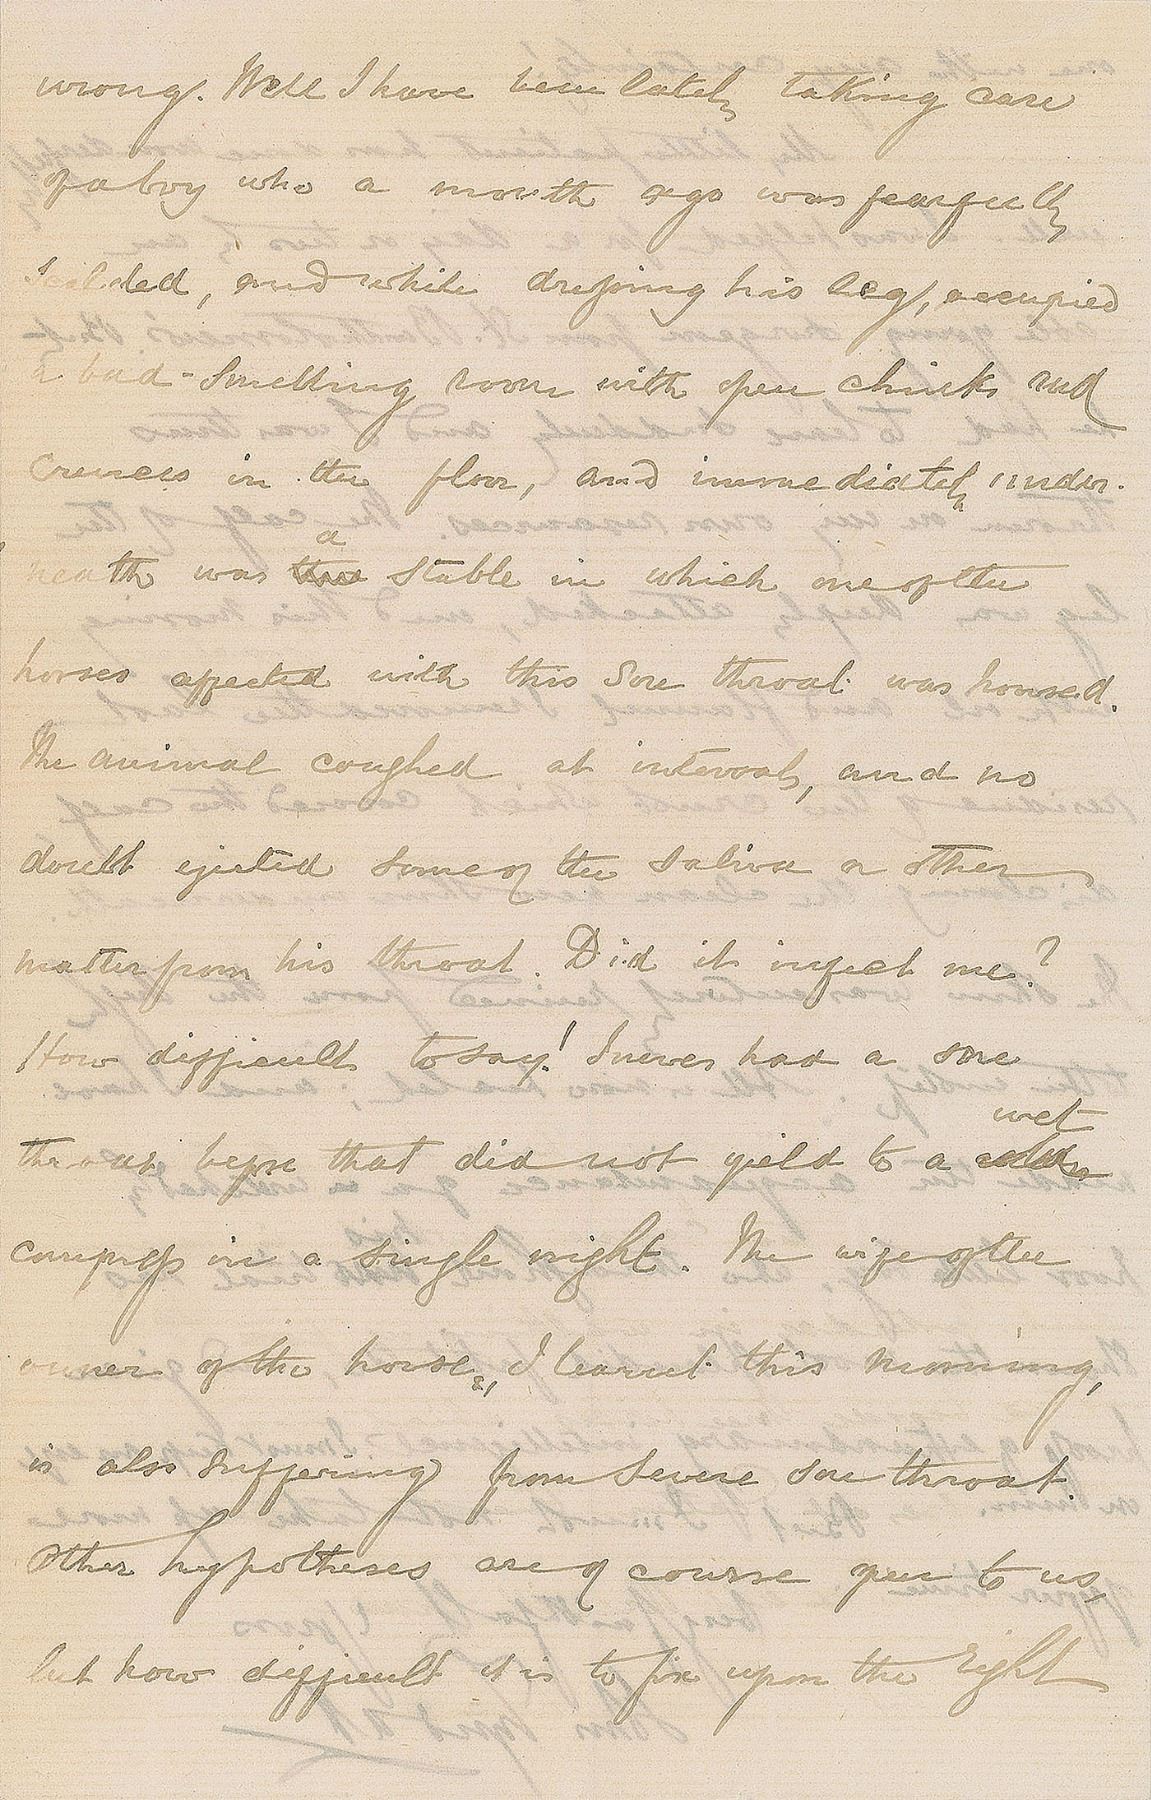 wrong. Well I have been lately taking care
of a boy who a month ago was fearfully
scalded, and while dressing his leg, occupied
a bad-smelling room with open chinks and
crevices in the floor, and immediately under-
a
neath was the stable in which one of the
horses affected with this sore throat was housed.
The animal coughed at intervals, and no
doubt ejected some of the saliva or other
matter from his throat. Did it infect me?
How difficult to say! I never had a sore
wet
throat before that did not yield to a
compress in a single night. The wife of the
owner of the horse, I learnt this morning,
is also suffering from severe sore throat.
Other hypotheses are of course open to us,
but how difficult it is to fix upon the right